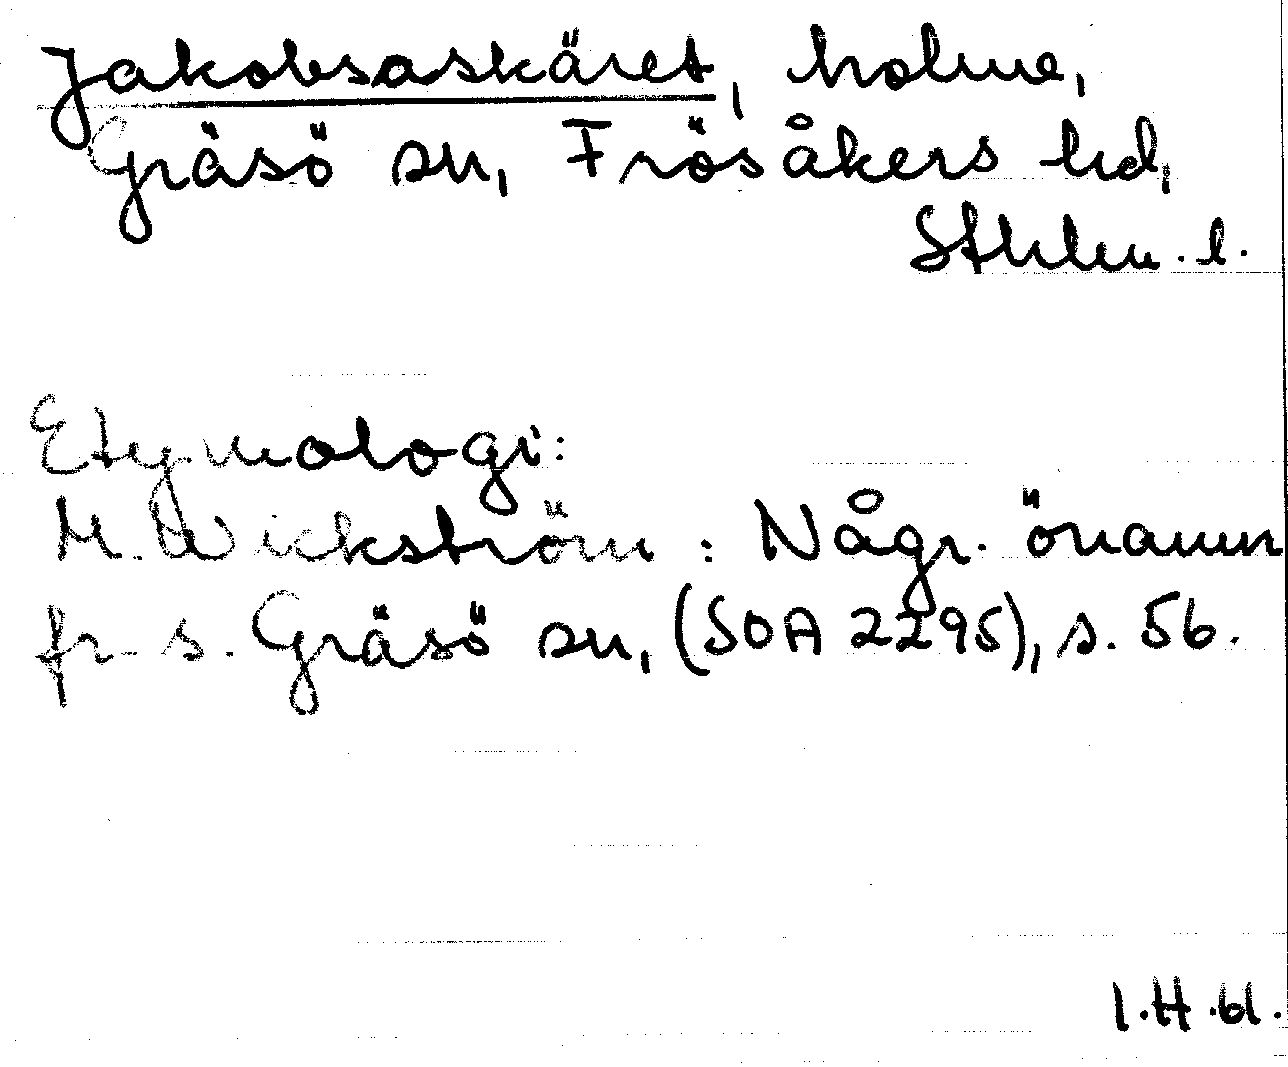 Jakobsaskäret, holme,
Gräsö sn, Frösåkers hd,
Sthlm. l.
Etymologi:
M. Wickström: Någr. önamn
fr. s. Gräsö sn, (SOA 2295), s. 56.
I.H.61.